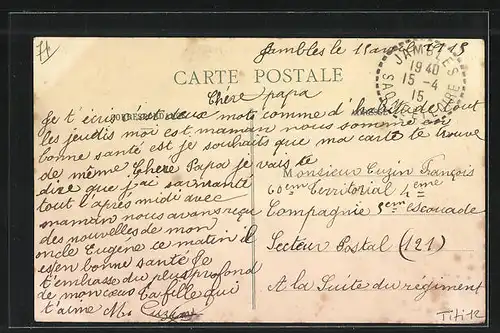 Jambles le 15 avril 1915
JAMBLES
1940
15-4
15
CARTE POSTALE
Chère papa
Je t'écrie c'est deux mots comme d'habitude tout
CORRESPONDANCE
les jeudis moi est maman nous somme en
bonne santé est je souhaits que ma carte te trouve
de même Chere Papa je vais te
dire que j'ai
tout l'après midi avec
maman nous avons reçu
des nouvelles de mon
oncle Eugène ce matin il
est en bonne santé Je
t'embrasse du plus profond
de mon coeur ta fille qui
t'aime M.
Monsieur Cuzin François
60em Territorial 4eme
Compagnie 5em escouade
Secteur Postal (121)
A la Suite du régiment